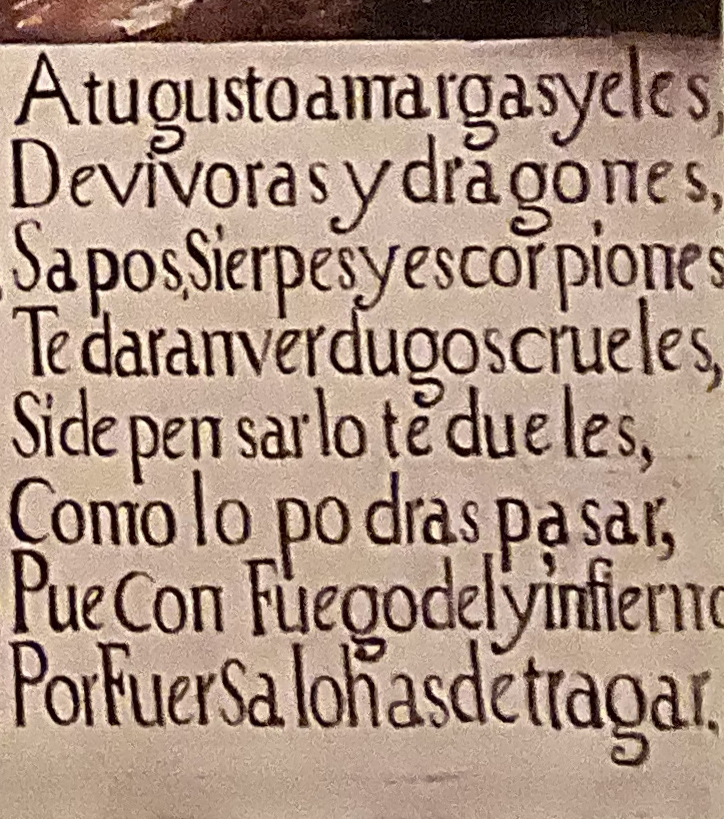 A tu gusto amargas yeles,
De vivoras y dragones,
Sapos, Sierpes y escorpiones
Te daran verdugos crueles,
Si de pensarlo te dueles,
Como lo podras pasar,
Pue Con Fuego del yinfierno
Por FuerSa lo has de tragar.